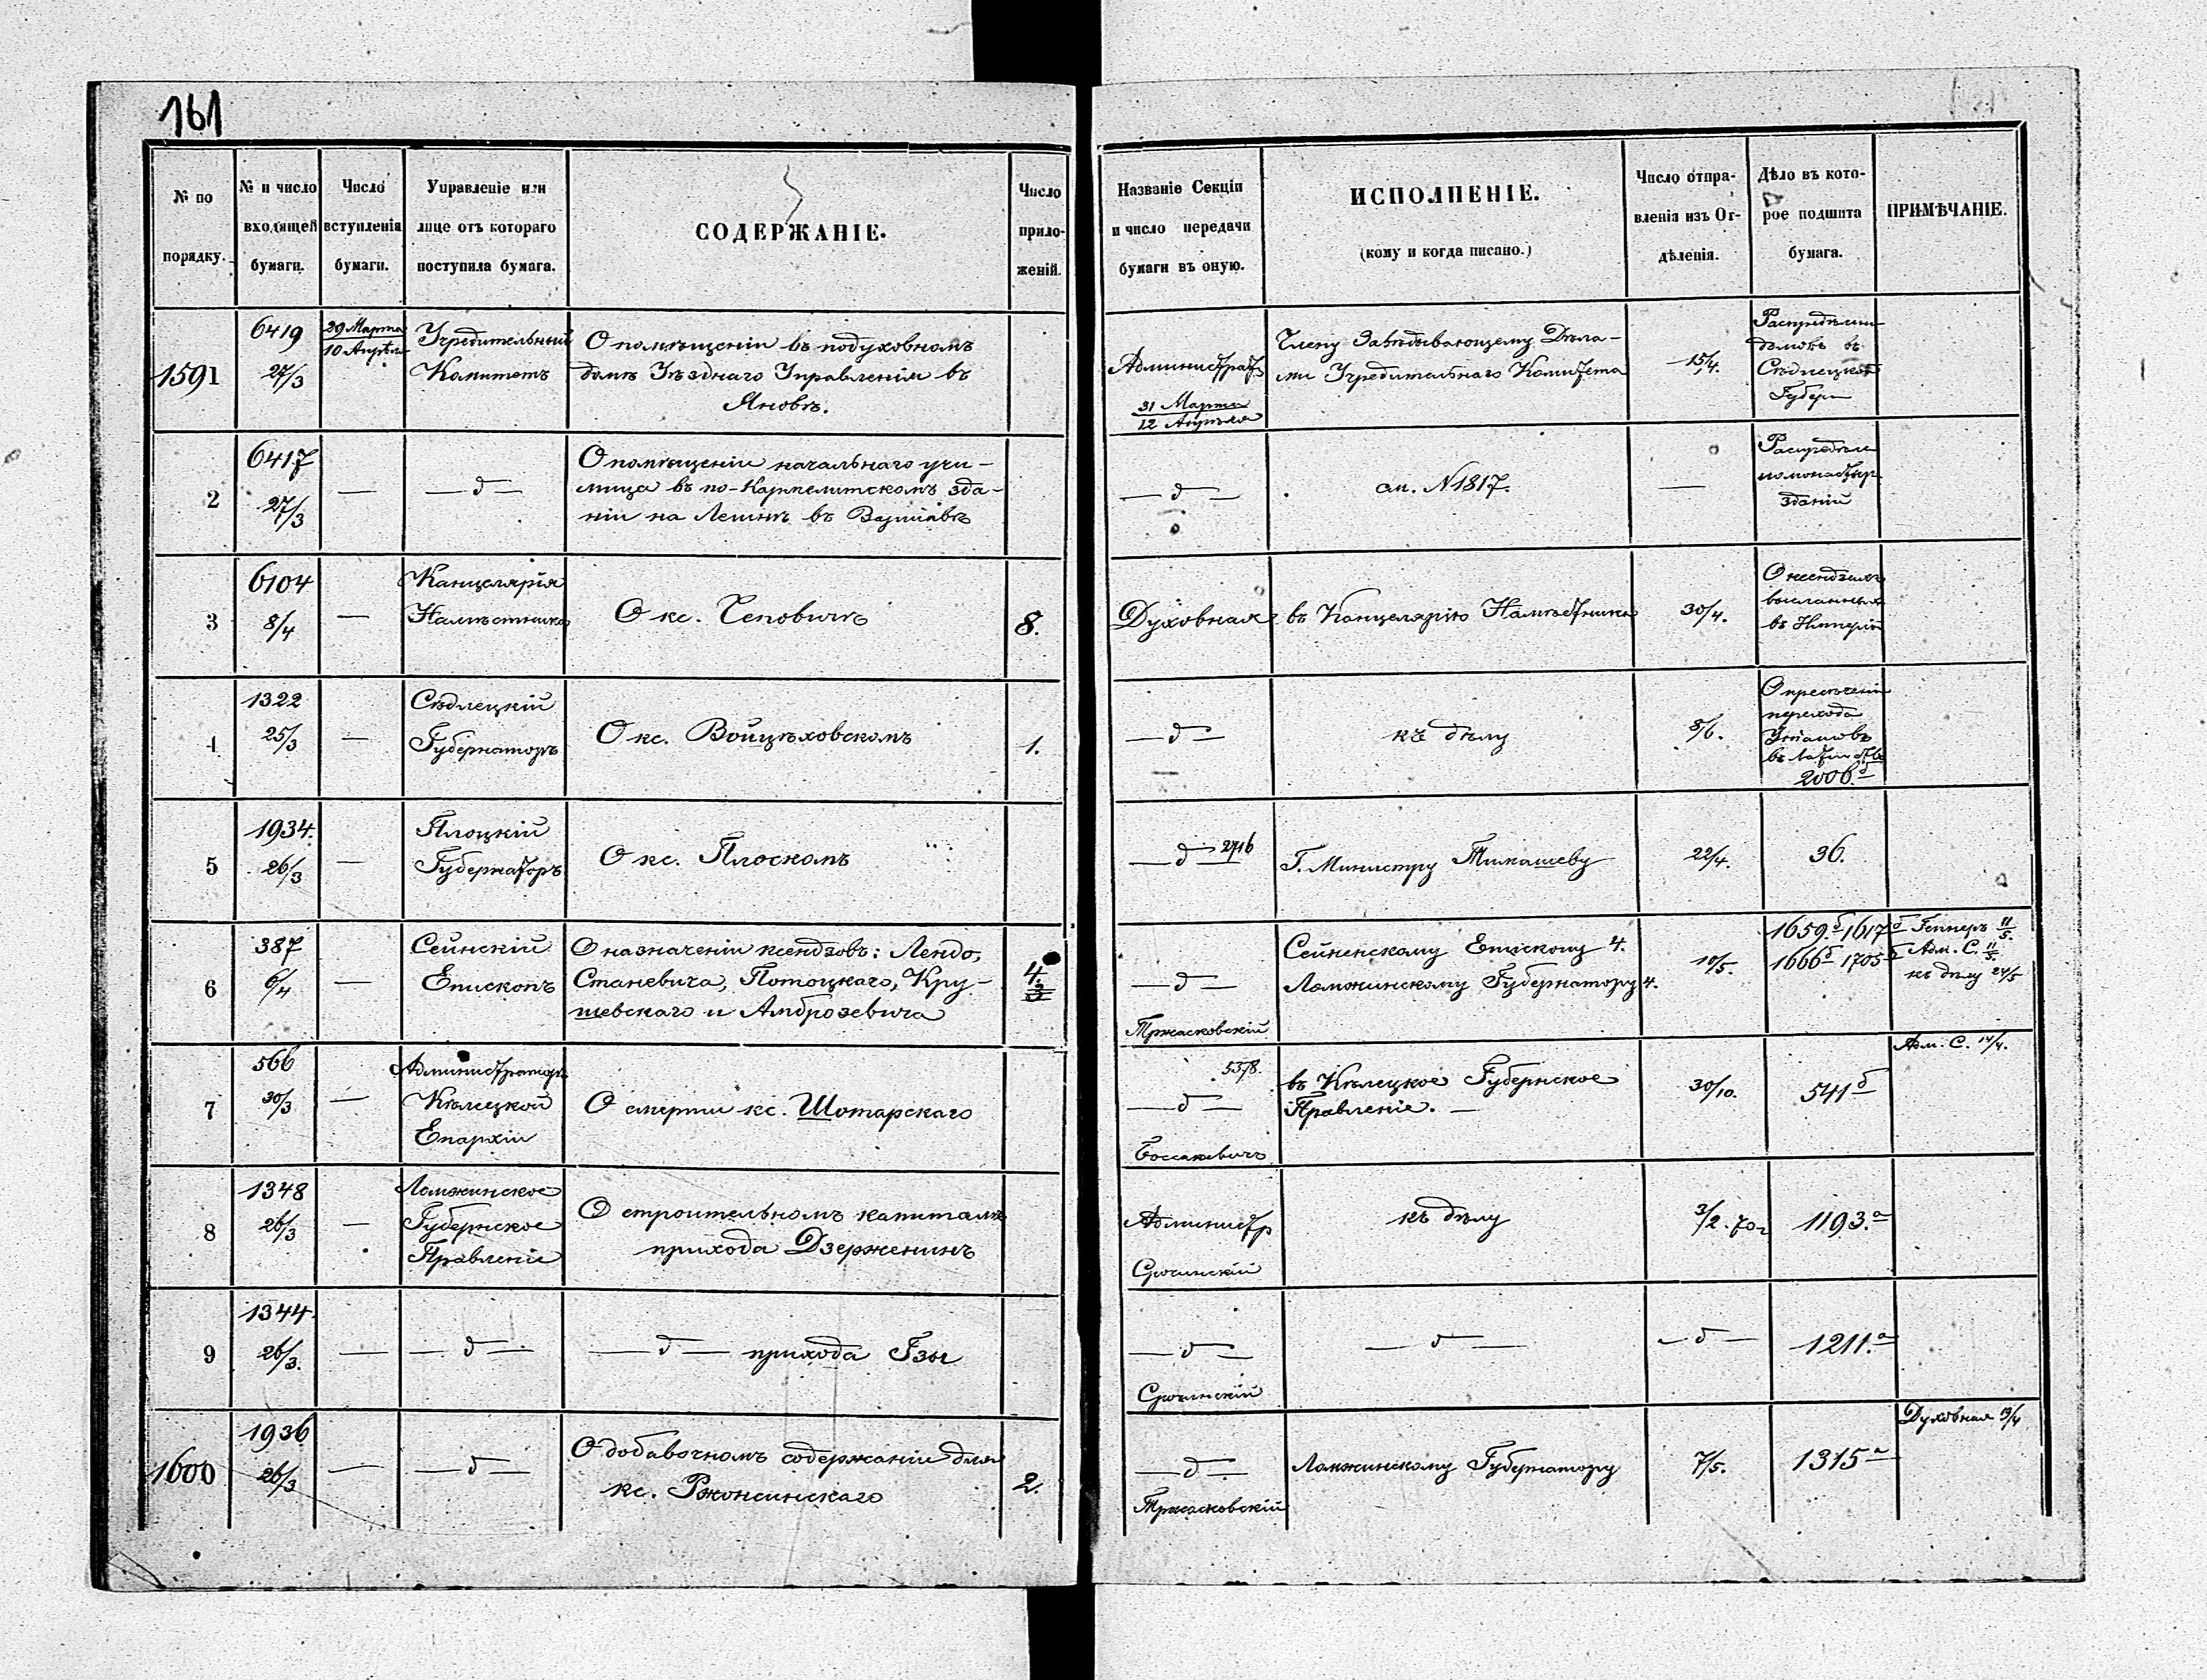 161
№ по порядку.
№ и число входящей бумаги.
Число вступленія бумаги.
Управленіе или лице отъ котораго поступила бумага.
СОДЕРЖАНІЕ.
Число приложеній.
Названіе Секціи и число передачи бумаги въ оную.
ИСПОЛНЕНІЕ.
(кому и когда писано.)
Число отправленія изъ Отдѣленія.
Дѣло въ которое подшита бумага.
ПРИМѢЧАНІЕ.
1591
6419
27/3
29 Марта
10 Апрѣля
Учредительный
Комитетъ
О помѣщеніи въ подуховномъ
домѣ Уѣзднаго Управленія въ
Яновѣ.
Администрат
31 Марта
12 Апрѣля
Члену Завѣдывающему Дѣла-
ми Учредительнаго Комитета
15/4.
домовъ въ
Сѣдлецкой
Губерн
2
6417
27/3
—
— д —
О помѣщеніи начальнаго учи-
лища въ по-Кармелитскомъ зда-
ніи на Лешнѣ въ Варшавѣ
— д —
см. N 1817.
—
Распредѣле
помонастыр
зданій
3
6104
8/4
—
Канцелярія
Намѣстника
О кс. Чеповичѣ
8.
Духовная
въ Канцелярію Намѣстника
30/4.
О ксендзахъ
высланныхъ
въ Имперію
4
1322
25/3
—
Сѣдлецкій
Губернаторъ
О кс. Войцѣховскомъ
1.
— д —
къ дѣлу
8/6.
О пресѣченіи
перехода
Уніатовъ
2006 б
5
1934.
26/3
—
Плоцкій
Губернаторъ
О кс. Плоскомъ
2716
— д —
Г. Министру Тимашеву
22/4.
36.
6
387
6/4
—
Сейнскій
Епископъ
О назначеніи ксендзовъ: Лендо,
Станевича, Потоцкаго, Кру-
шевскаго и Амброзевича
4
— д —
Тржасковскій
Сейненскому Епископу 4.
Ломжинскому Губернатору 4.
10/5.
1659.б 1617 б
1666 б 1705 б
Гепнеръ 11/5.
Адм. С. 11/5
къ дѣлу 24/5
7
566
30/3
—
Администраторъ
Кѣлецкой
Епархіи
О смерти кс. Шотарскаго
5378.
— д —
въ Кѣлецкое Губернское
Правленіе. —
30/10.
541 б
Адм. С. 14/4.
8
1348
26/3
—
Ломжинское
Губернское
Правленіе
О строительномъ капиталѣ
прихода Дзерженинъ
Администр
къ дѣлу
3/2. 70 г
1193.а
9
1344.
26/3.
—
— д —
— д — прихода Гзы
— д —
— д —
— д —
1211.а
1600
1936
26/3
—
— д —
О добавочномъ содержаніи для
кс. Ржонсинскаго
2.
— д —
Тржасковскій
Ломжинскому Губернатору
7/5.
1315 а
Духовная 19/4